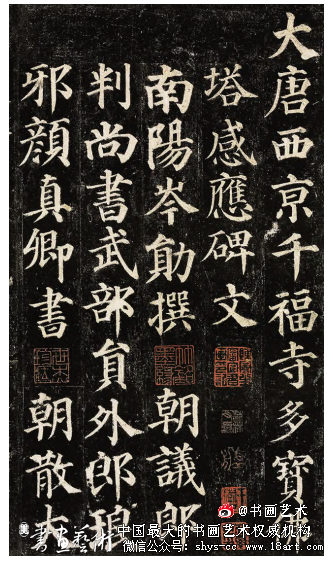 大唐西京千福寺多寶佛
塔感應碑文
南陽岑勛撰 朝議郎
判尚書武部員外郎琅
邪顏真卿書 朝散大
@书画艺术
中国最大的书画艺术权威机构
微信公众号: shystcc www.18art.com